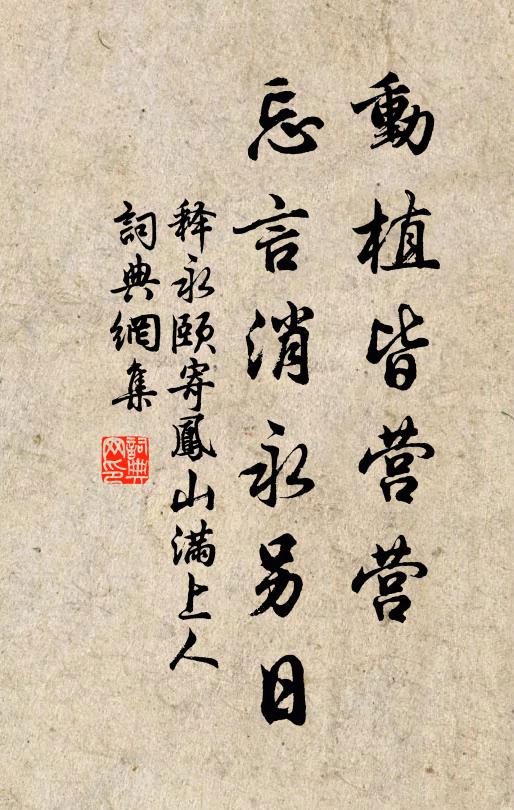 動植皆营营
忘言消永另日
释永颐寄鳳山滿上人
詞典網集
詞典網印